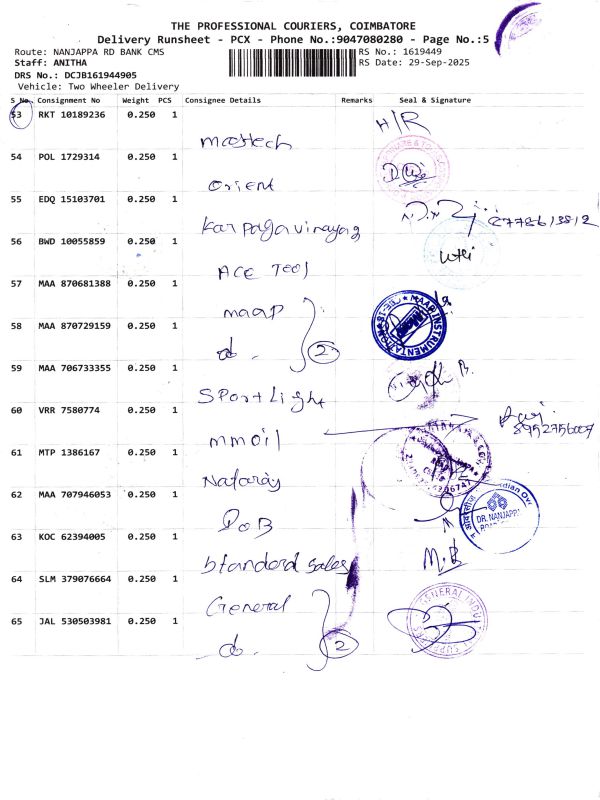 THE PROFESSIONAL COURIERS, COIMBATORE
Delivery Runsheet - PCX - Phone No.:9047080280 - Page No.:5
Route: NANJAPPA RD BANK CMS
RS No.: 1619449
Staff: ANITHA
RS Date: 29-Sep-2025
DRS No.: DCJB161944905
Vehicle: Two Wheeler Delivery
S No. Consignment No Weight PCS Consignee Details Remarks Seal & Signature
53 RKT 10189236 0.250 1
H/R
54 POL 1729314 0.250 1
Orient
55 EDQ 15103701 0.250 1
Karpagavinayag
56 BWD 10055859 0.250 1
ACE Tool
57 MAA 870681388 0.250 1
maap
MAAP INSTRUMENTATION
58 MAA 870729159 0.250 1
do. 2
59 MAA 706733355 0.250 1
Sportlight
60 VRR 7580774 0.250 1
mmoil
61 MTP 1386167 0.250 1
Nataraj
62 MAA 707946053 0.250 1
DR. NANJAPPA
63 KOC 62394005 0.250 1
Standard Sales
64 SLM 379076664 0.250 1
General
65 JAL 530503981 0.250 1
do. 2